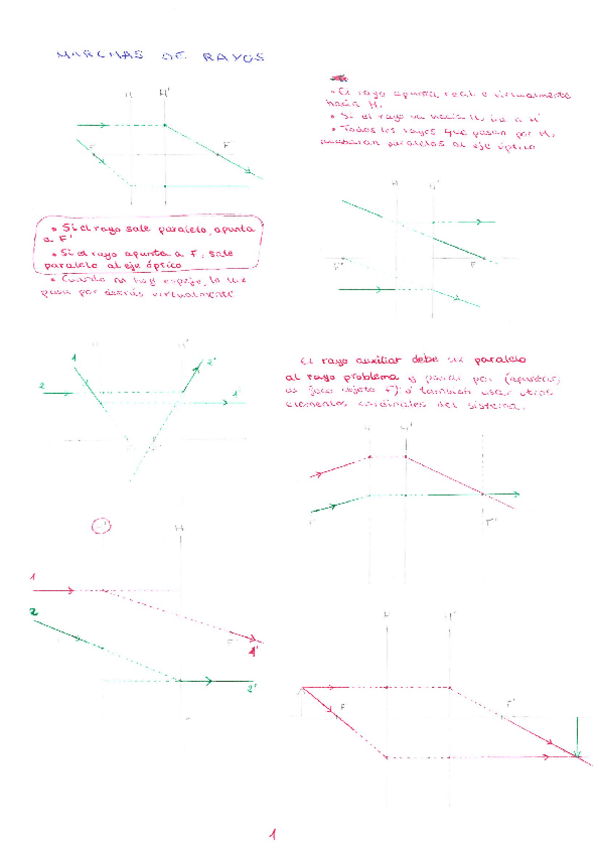 MARCHAS DE RAYOS
H H'
F F'
• El rayo apunta real o virtualmente
hacia H.
• Si el rayo va hacia H, irá a H'
• Todos los rayos que pasan por H,
paralelos al eje óptico
H H'
F' F
• Si el rayo sale paralelo, apunta
a F'
• Si el rayo apunta a F, sale
paralelo al eje óptico
• Cuando no hay espejo, la luz
pasa por detrás virtualmente
1 2'
2 1'
El rayo auxiliar debe ser paralelo
al rayo problema y pasar por (apuntar)
foco objeto F; ó también usar otros
elementos cardinales del sistema.
F F'
H
1
1'
2
2'
H H'
F F'
1